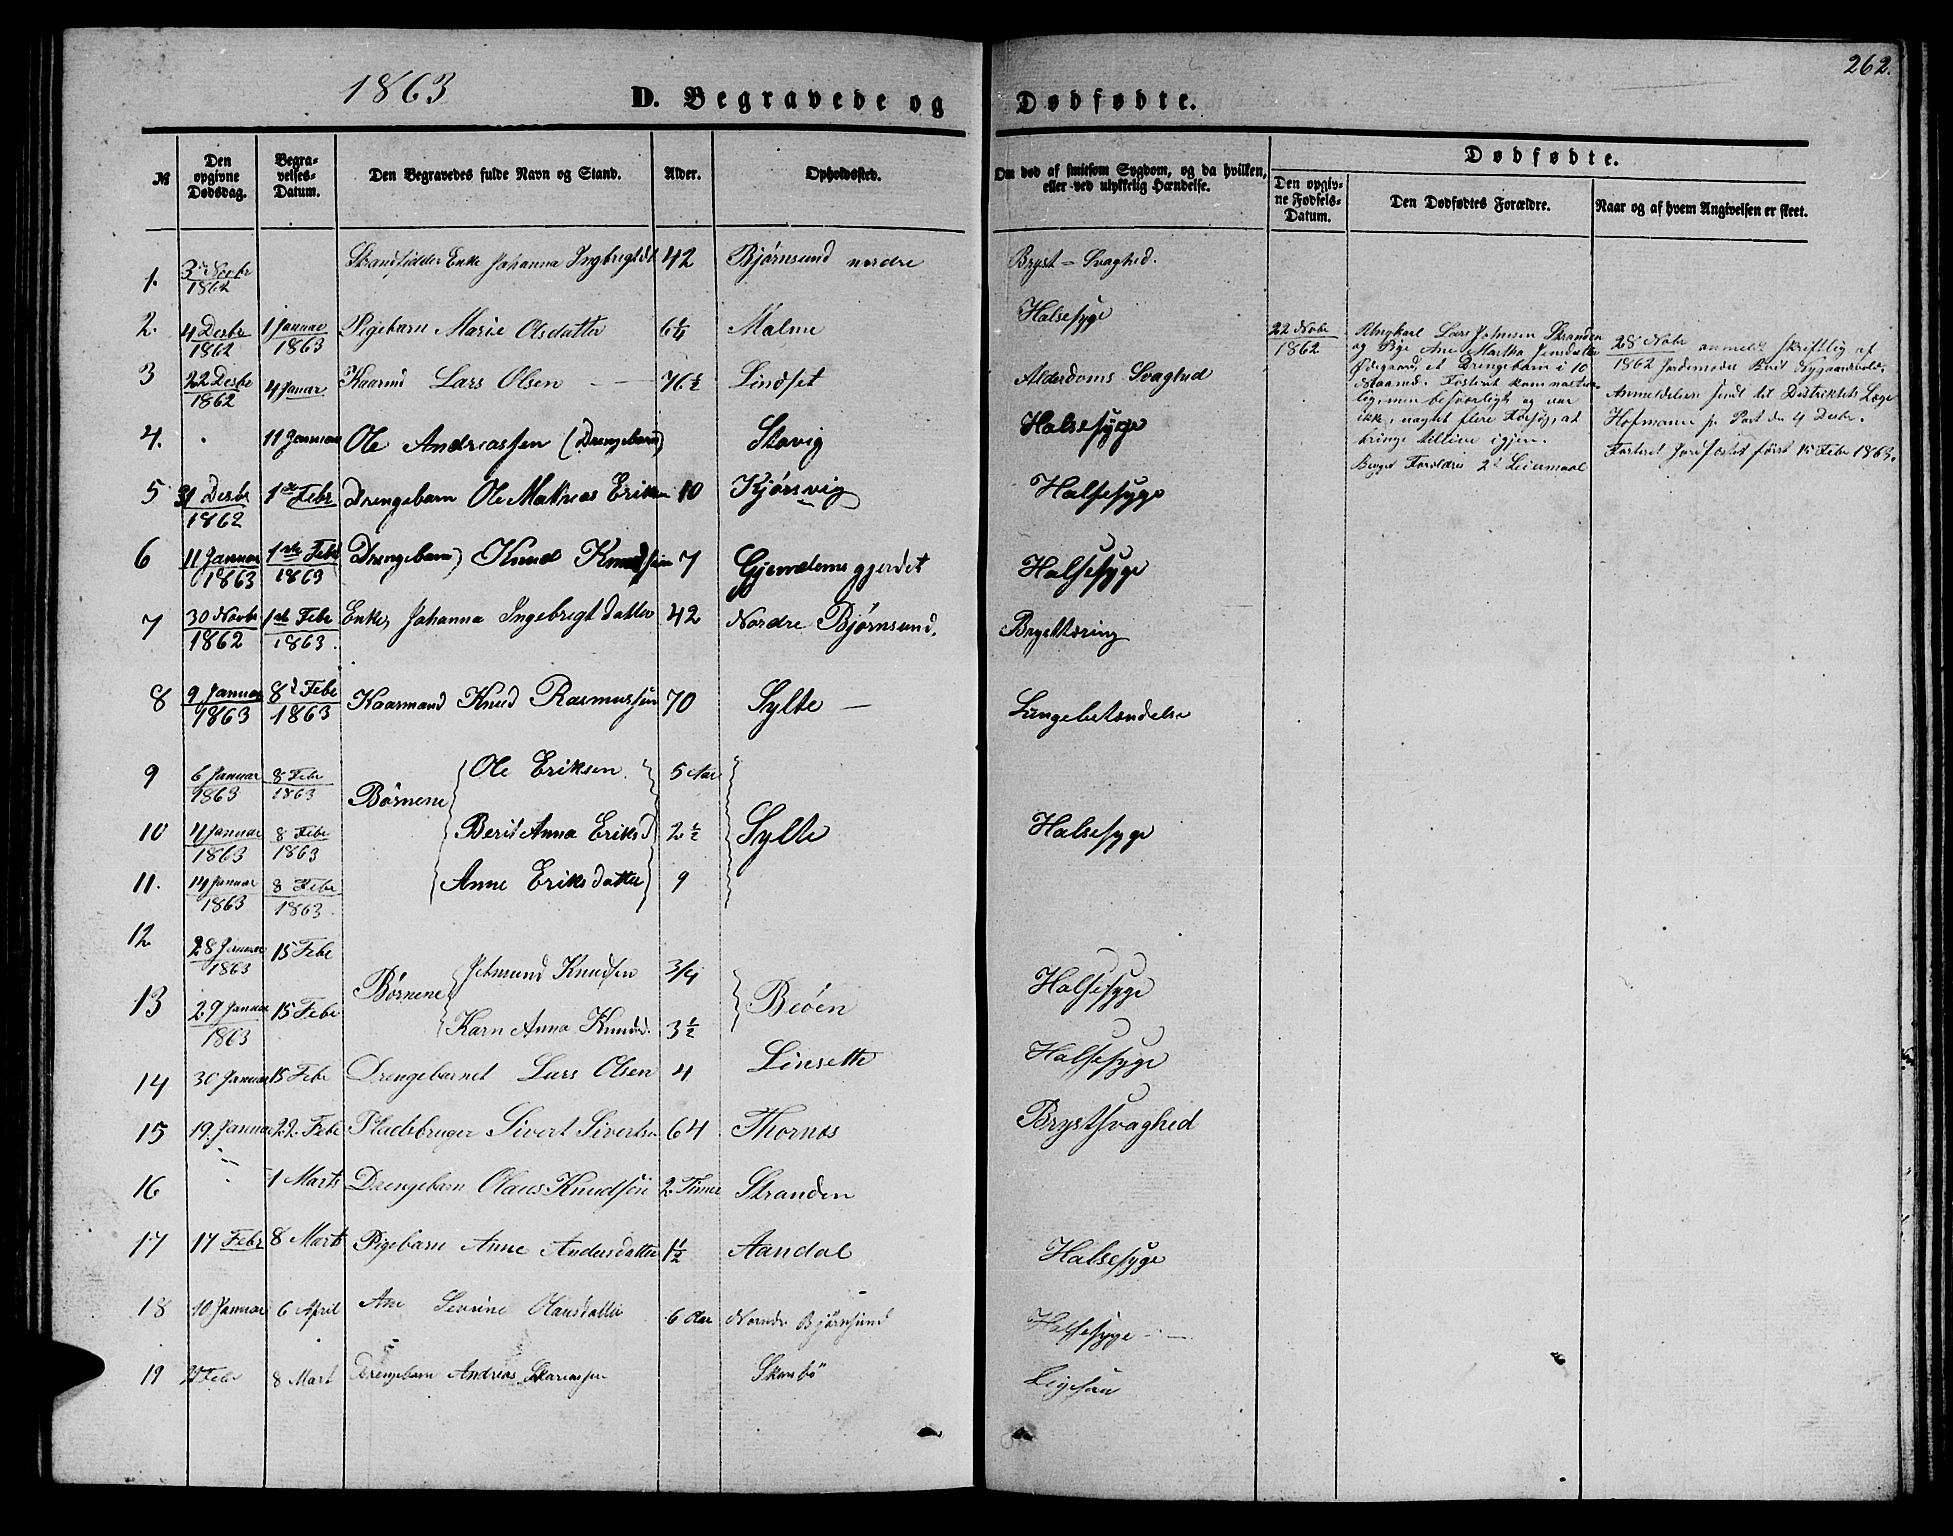 262.
1863 D. Begravede og Dødfødte.
№ Den opgivne Dødsdag. Begravelses-Datum. Den Begravedes fulde Navn og Stand. Alder. Opholdssted. Om død af smitsom Sygdom, og da hvilken, eller ved ulykkelig Hændelse. Dødfødte.
Den opgivne Fødsels-Datum. Den Dødfødtes Forældre. Naar og af hvem Angivelsen er skeet.
1. 1862 Strandsidder Enke Johanna Ingbrigtsdt 42 Bjørnsund nordre Bryst-Svaghed.
2. 4 Desbr 1862 1 Januar 1863 Pigebarn Marie Olsdatter 6¼ Malme Halsesyge
3 22 Desbr 1862 4 Januar Kaarmd Lars Olsen — 76½ Lindset Alderdoms Svaghed
4. . 11 Januar Ole Andreassen (Drengebarn) Stavig Halsesyge
5 31 Desbr 1862 1ste Febr Drengebarn Ole Mathias Eriksen 10 Kjørsvig Halsesyge
6 11 Januar 1863 1ste Febr 1863 Drengebarn Knud Knudsen 7 Gjendemsgjerdet Halsesyge
7 30 Novbr 1862 1ste Febr 1863. Enke Johanna Ingebrigtdatter 42 Nordre Bjørnsund. Brysttæring
8 9 Januar 1863 8d Febr 1863 Kaarmand Knud Rasmussen 70 Sylte — Lungebetændelse
9 6 Januar 1863 8 Febr 1863 Børnene Ole Eriksen 5 Aar
10 4 Januar 1863 8 Febr 1863 Berit Anna Eriksd 2½ Sylte Halsesyge
11. 14 Januar 1863 8 Febr 1863. Anne Eriksdatter 9
12 28 Januar 1863 15 Febr Børnene Jetmund Knudsen 3/4
13 29 Januar 1863 15 Febr Karn Anna Knudsd. 3½ Beøen Halsesyge
14 30 Januar 15 Febr Drengebarnet Lars Olsen 4 Linsette Halsesyge
15 19. Januar 22. Febr Pladsbruger Sivert Sivertsen 64 Thornes Brystsvaghed
16 1 Marts Drengebarn Olaus Knudsen 2 Timer Stranden
17 17 Febr 8 Marts Pigebarn Anne Andersdatter 1½ Aandal Halsesyge
18 10 Januar 6 April Ane Sevrine Olausdatter 6 Aar Nordre Bjørnsund Halsesyge
19 Febr 8 Mart Drengebarn Andreas Skansbö Ligesaa
22 Novbr 1862
Ungkarl Lars Johnsen Stranden
og Pige Ane Martha Jensdatter
Ødegaard, et Drengebarn i 10
Maaned. Fosteret kom naturlig,
men besværligt og var
ikke, uagtet flere Forsøg, at
bringe tillive igjen.
Begge Forældres 2d Leiermaal
28 Novbr 1862 anmeldt skriftlig af
Jordemoder Berit
Anmeldelsen sendt til Distriktets Læge
Hofmann pr Post du 4 Desbr.
Fosteret Jordfæstet først 15 Febr 1863.